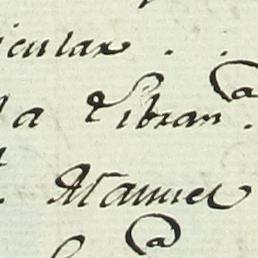 icular . .
la Libran.ª
. Manuel
a